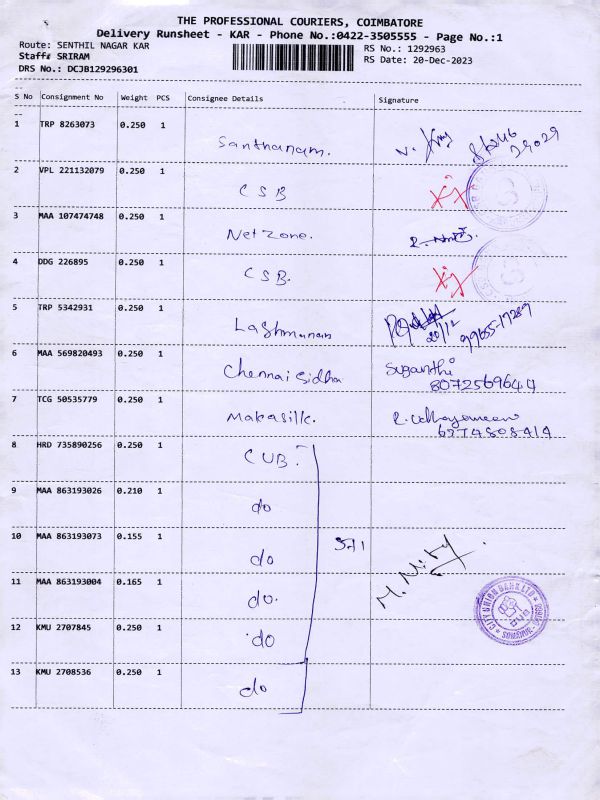 THE PROFESSIONAL COURIERS, COIMBATORE
Delivery Runsheet - KAR - Phone No.:0422-3505555 - Page No.:1
Route: SENTHIL NAGAR KAR
RS No.: 1292963
Staff: SRIRAM
RS Date: 20-Dec-2023
DRS No.: DCJB129296301
S No Consignment No Weight PCS Consignee Details Signature
1 TRP 8263073 0.250 1
Santhanam.
2 VPL 221132079 0.250 1
CSB
3 MAA 107474748 0.250 1
Net Zone.
4 DDG 226895 0.250 1
CSB.
5 TRP 5342931 0.250 1
Lashmanan
20/12
99655-17289
6 MAA 569820493 0.250 1
Chennai Sidha Suganthi
8072569644
7 TCG 50535779 0.250 1
Makasilk.
8 HRD 735890256 0.250 1
CUB.
9 MAA 863193026 0.210 1
do
10 MAA 863193073 0.155 1
do
11 MAA 863193004 0.165 1
do.
CITY UNION BANK LTD
12 KMU 2707845 0.250 1
do
13 KMU 2708536 0.250 1
do